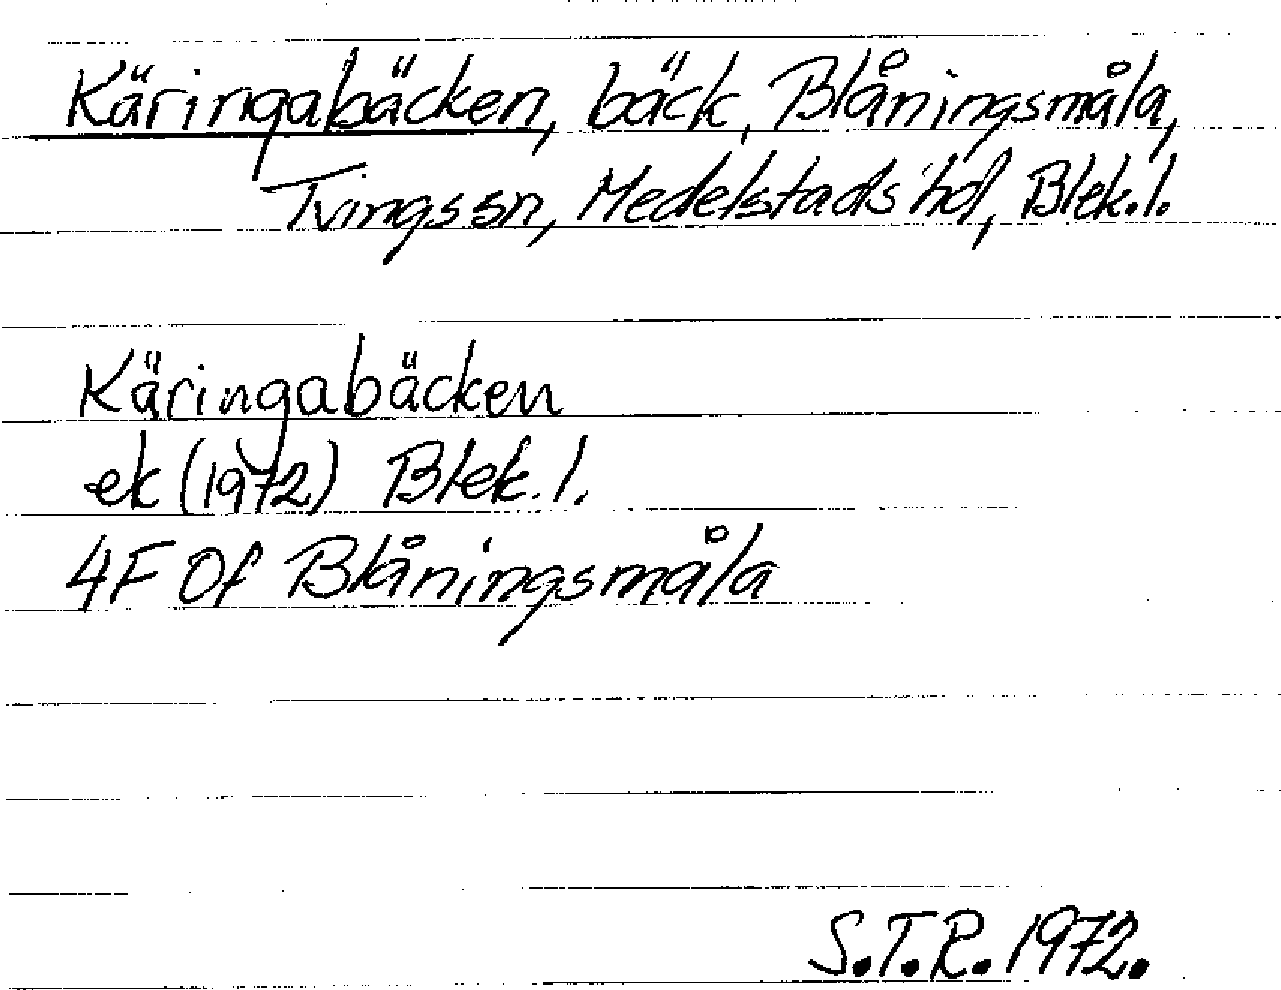 Käringabäcken, bäck, Blåningsmåla,
Tvings sn, Medelstads hd, Blek. l.
Käringabäcken
ek (1972) Blek. l.
4F 0f Blåningsmåla
S.T.R. 1972.